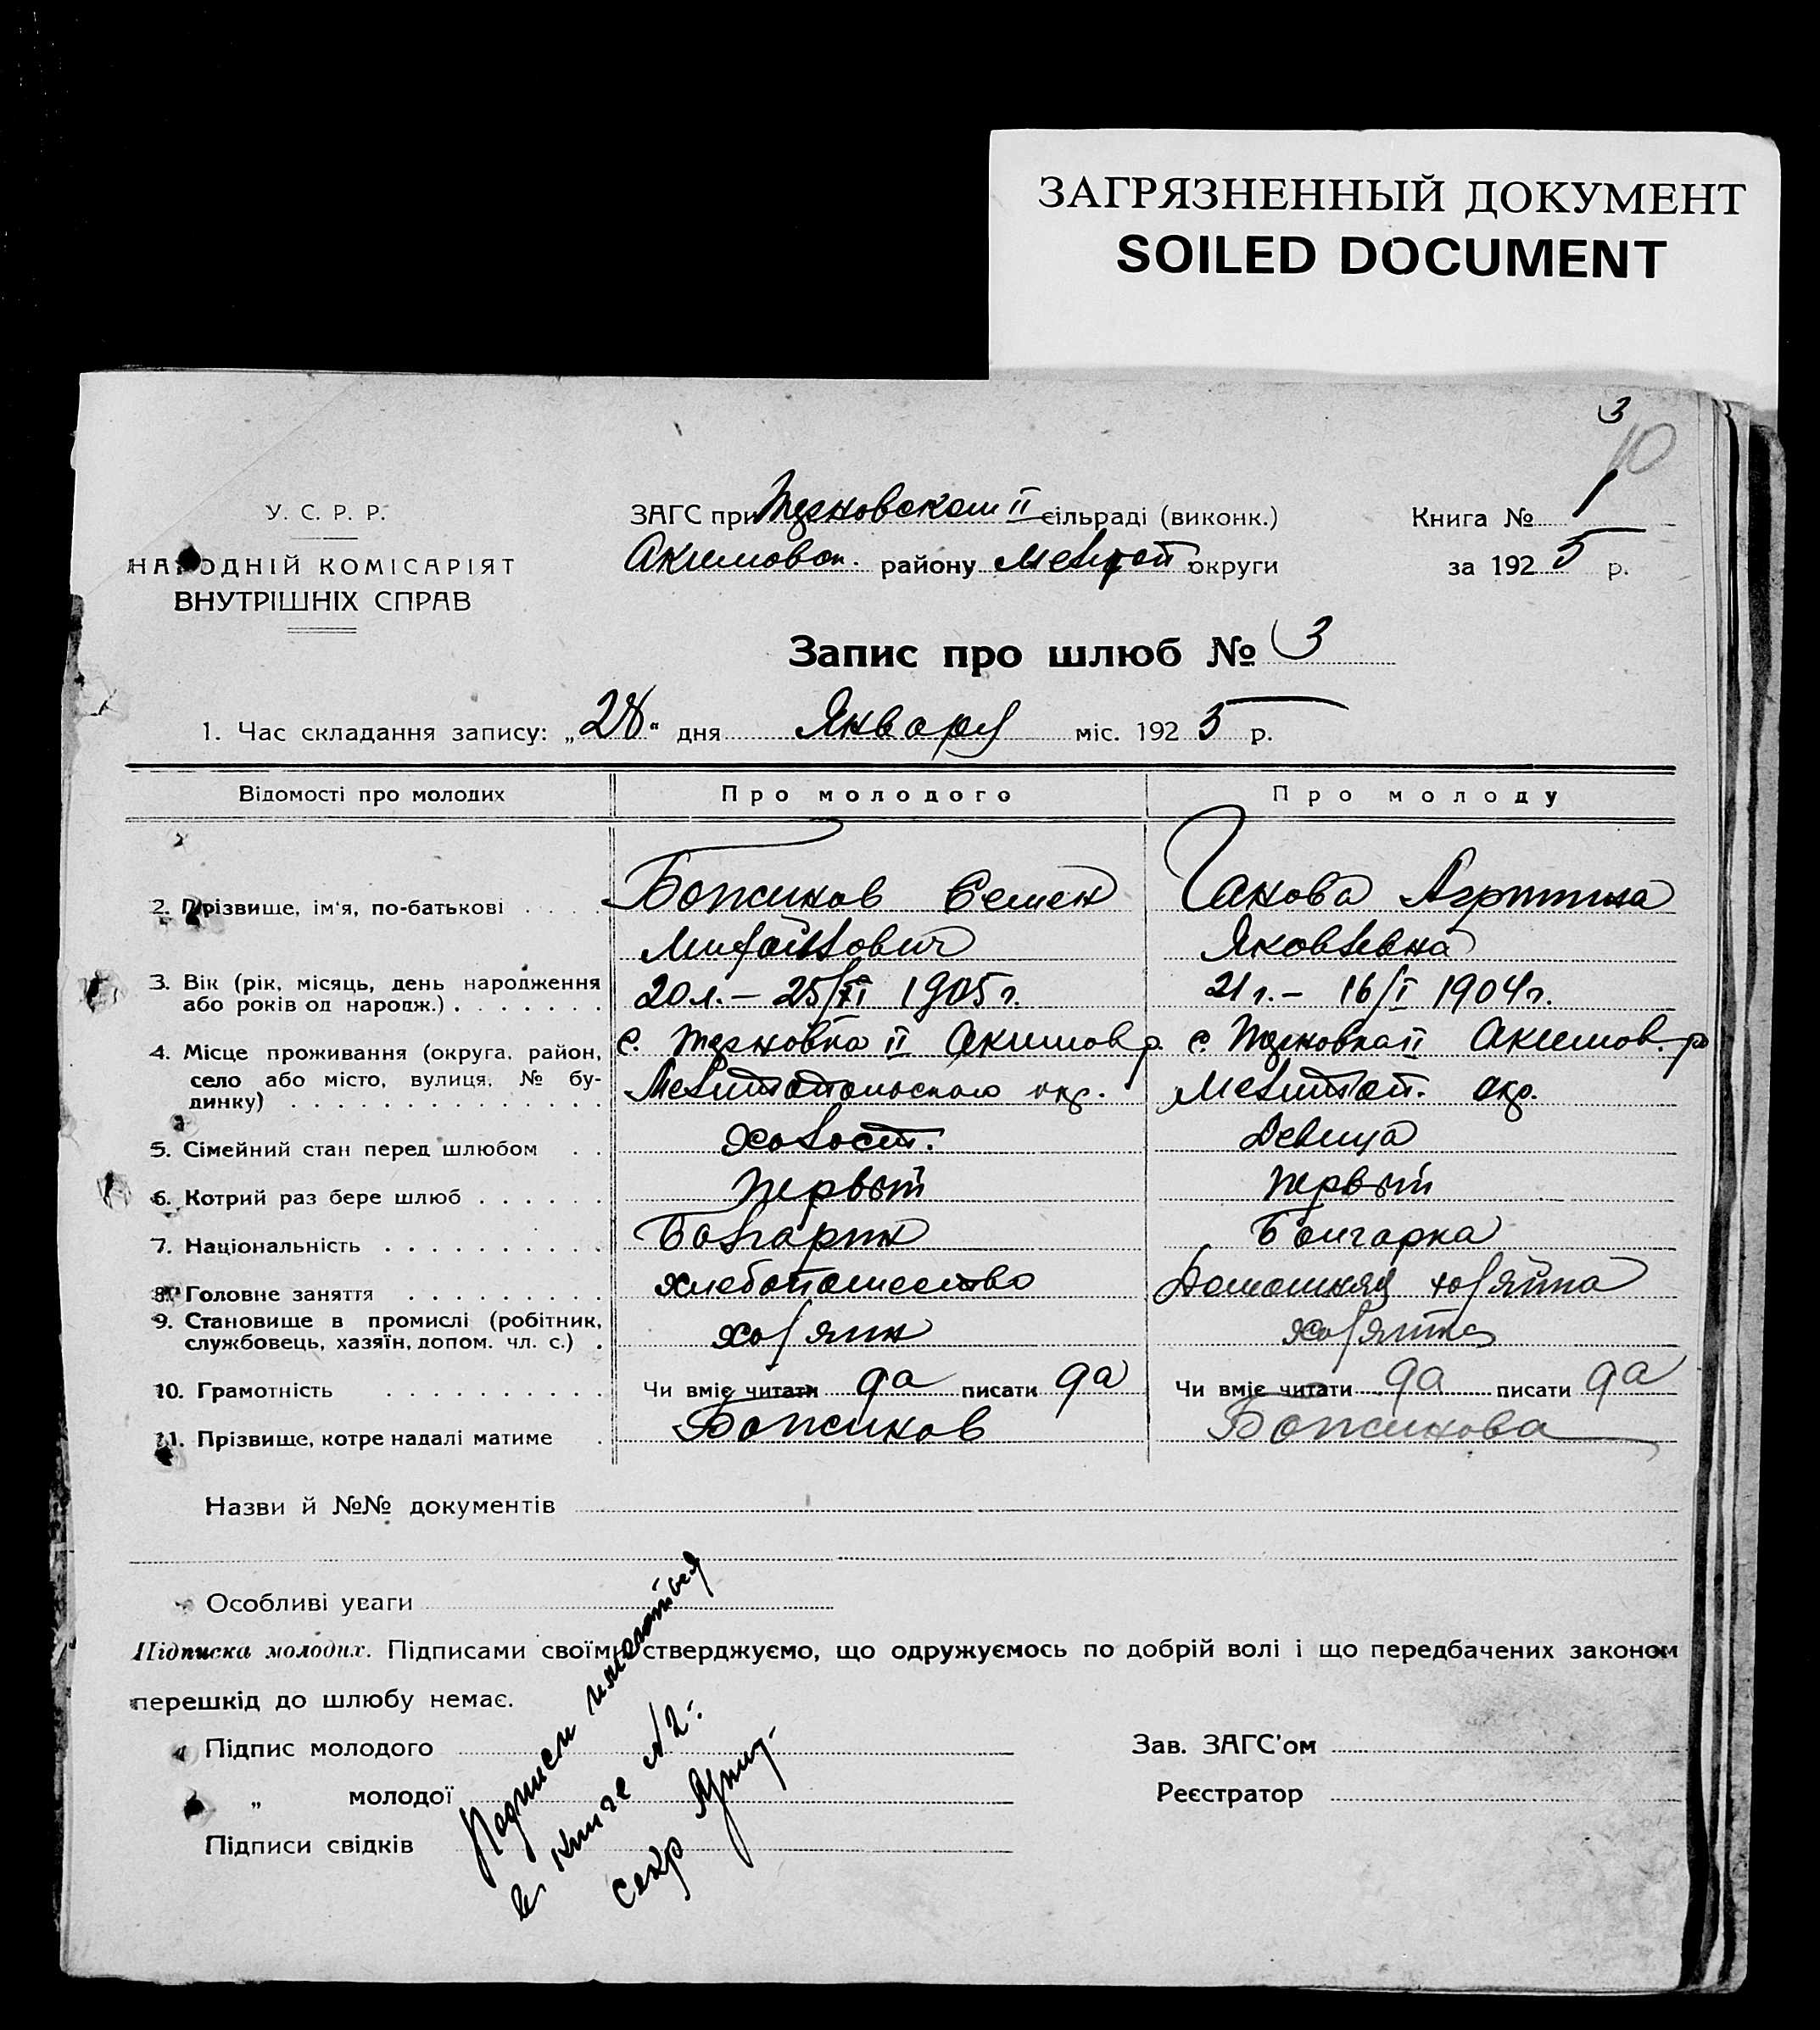 ЗАГРЯЗНЕННЫЙ ДОКУМЕНТ
SOILED DOCUMENT
3
10
У. С. Р. Р.
НАРОДНІЙ КОМІСАРІЯТ
ВНУТРІШНІХ СПРАВ
ЗАГС при Терновском II сільраді (виконк.)
Акимовск. району Мелитоп округи
Книга № 1
за 1925 р.
Запис про шлюб № 3
1. Час складання запису: „28“ дня Января міс. 1925 р.
Відомості про молодих Про молодого Про молоду
2. Прізвище, ім'я, по-батькові . . . . Божиков Семен Чакова Агриппина
Михайлович Яковлевна
3. Вік (рік, місяць, день народження 20 л. – 25/ 1905 г. 21 г. – 16/I 1904 г.
або років од народж.) . . . . . . .
4. Місце проживання (округа, район, с. Терновка II Акимов р. с. Терновка II Акимов. р
село або місто, вулиця, № бу-
динку) . . . . . . . . . . . . . . Мелитопольского окр. Мелитоп. окр.
5. Сімейний стан перед шлюбом . . холост. Девица
6. Котрий раз бере шлюб . . . . . . первый первый
7. Національність . . . . . . . . . . Болгарин Болгарка
8. Головне заняття . . . . . . . . . хлебопашество Домашняя хозяйка
9. Становище в промислі (робітник,
службовець, хазяїн, допом. чл. с.) . хозяин хозяйка
10. Грамотність . . . . . . . . . . Чи вміє читати да писати да Чи вміє читати да писати да
11. Прізвище, котре надалі матиме . Божиков Божикова
Назви й №№ документів
Особливі уваги
Підписка молодих. Підписами своїми стверджуємо, що одружуємось по добрій волі і що передбачених законом
перешкід до шлюбу немає.
Підпис молодого
„ молодої
Підписи свідків
Зав. ЗАГС'ом
Реєстратор
Подписи имеються
в книге №2.
секр